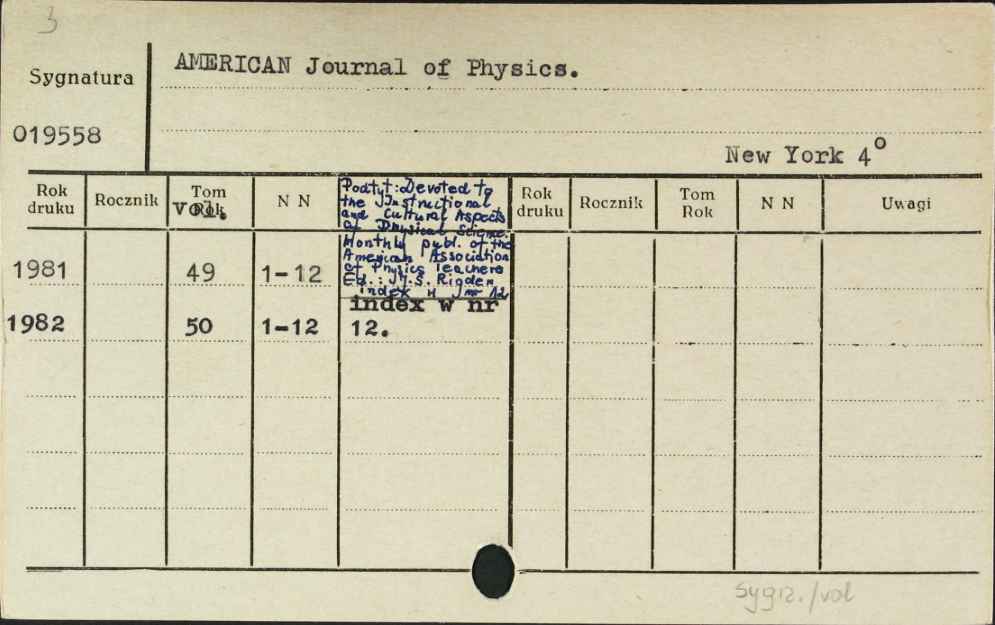 3
Sygnatura
AMERICAN Journal of Physics.
019558
New York 4°
Rok druku Rocznik Tom Rok vol. N N Rok druku Rocznik Tom Rok N N Uwagi
Podtyt: Devoted to
the Instructional
and Cultural Aspects
of Physical Science.
Monthly publ. of the
American Association
of Physics Teachers
Ed.: J.S. Rigden
index w nr 12
1981 49 1-12
index w nr
1982 50 1-12 12.
sygn./vol